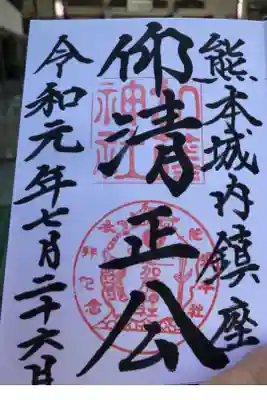 熊本城内鎮座
仰清正公
令和元年七月二十六日
加藤
神社